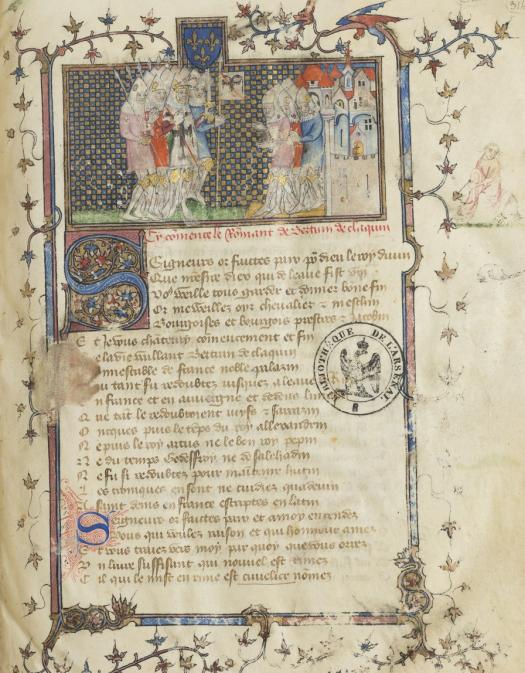 Cy comence le Romant de Bertain de claquin
Seigneurs or faittes paix por dieu le roy divin
Que messire dieu qui de leaue fist vin
Vous veille tous garder et donner bone fin
Or me veillez oyr chevalier & meschin
Bourgoises et bourgois prestres & Jacobin
Et Je vous chanteray comencement et fin
De la vie vaillant Bertain de claquin
Connestable de france noble palazin
Qui tant fu redoubtez jusques a leaue
En france et en auvergne et dedens lim
Que tãt le redoubtoient juifs & sarazin
Onoques puis le tẽps du roy alixandrin
Ne puis le roy artus ne le bon roy pepin
Ne du temps Godeffroy ne de salehadin
Ne fu si redoubtez pour maintenir hutin
Les croniques en sont ne cuidiez quadevin
A saint denis en france escriptes en latin
Seigneurs or faittes paix et a moy entendez
Vous qui voulez raison et qui honnour amez
Et vous traiez vers moy par quoy que vous orrez
Un livre suffisant qui nouvel est rimez
Cil qui le mist en rime est cuvelier nomez
BIBLIOTHÈQUE DE L'ARSENAL